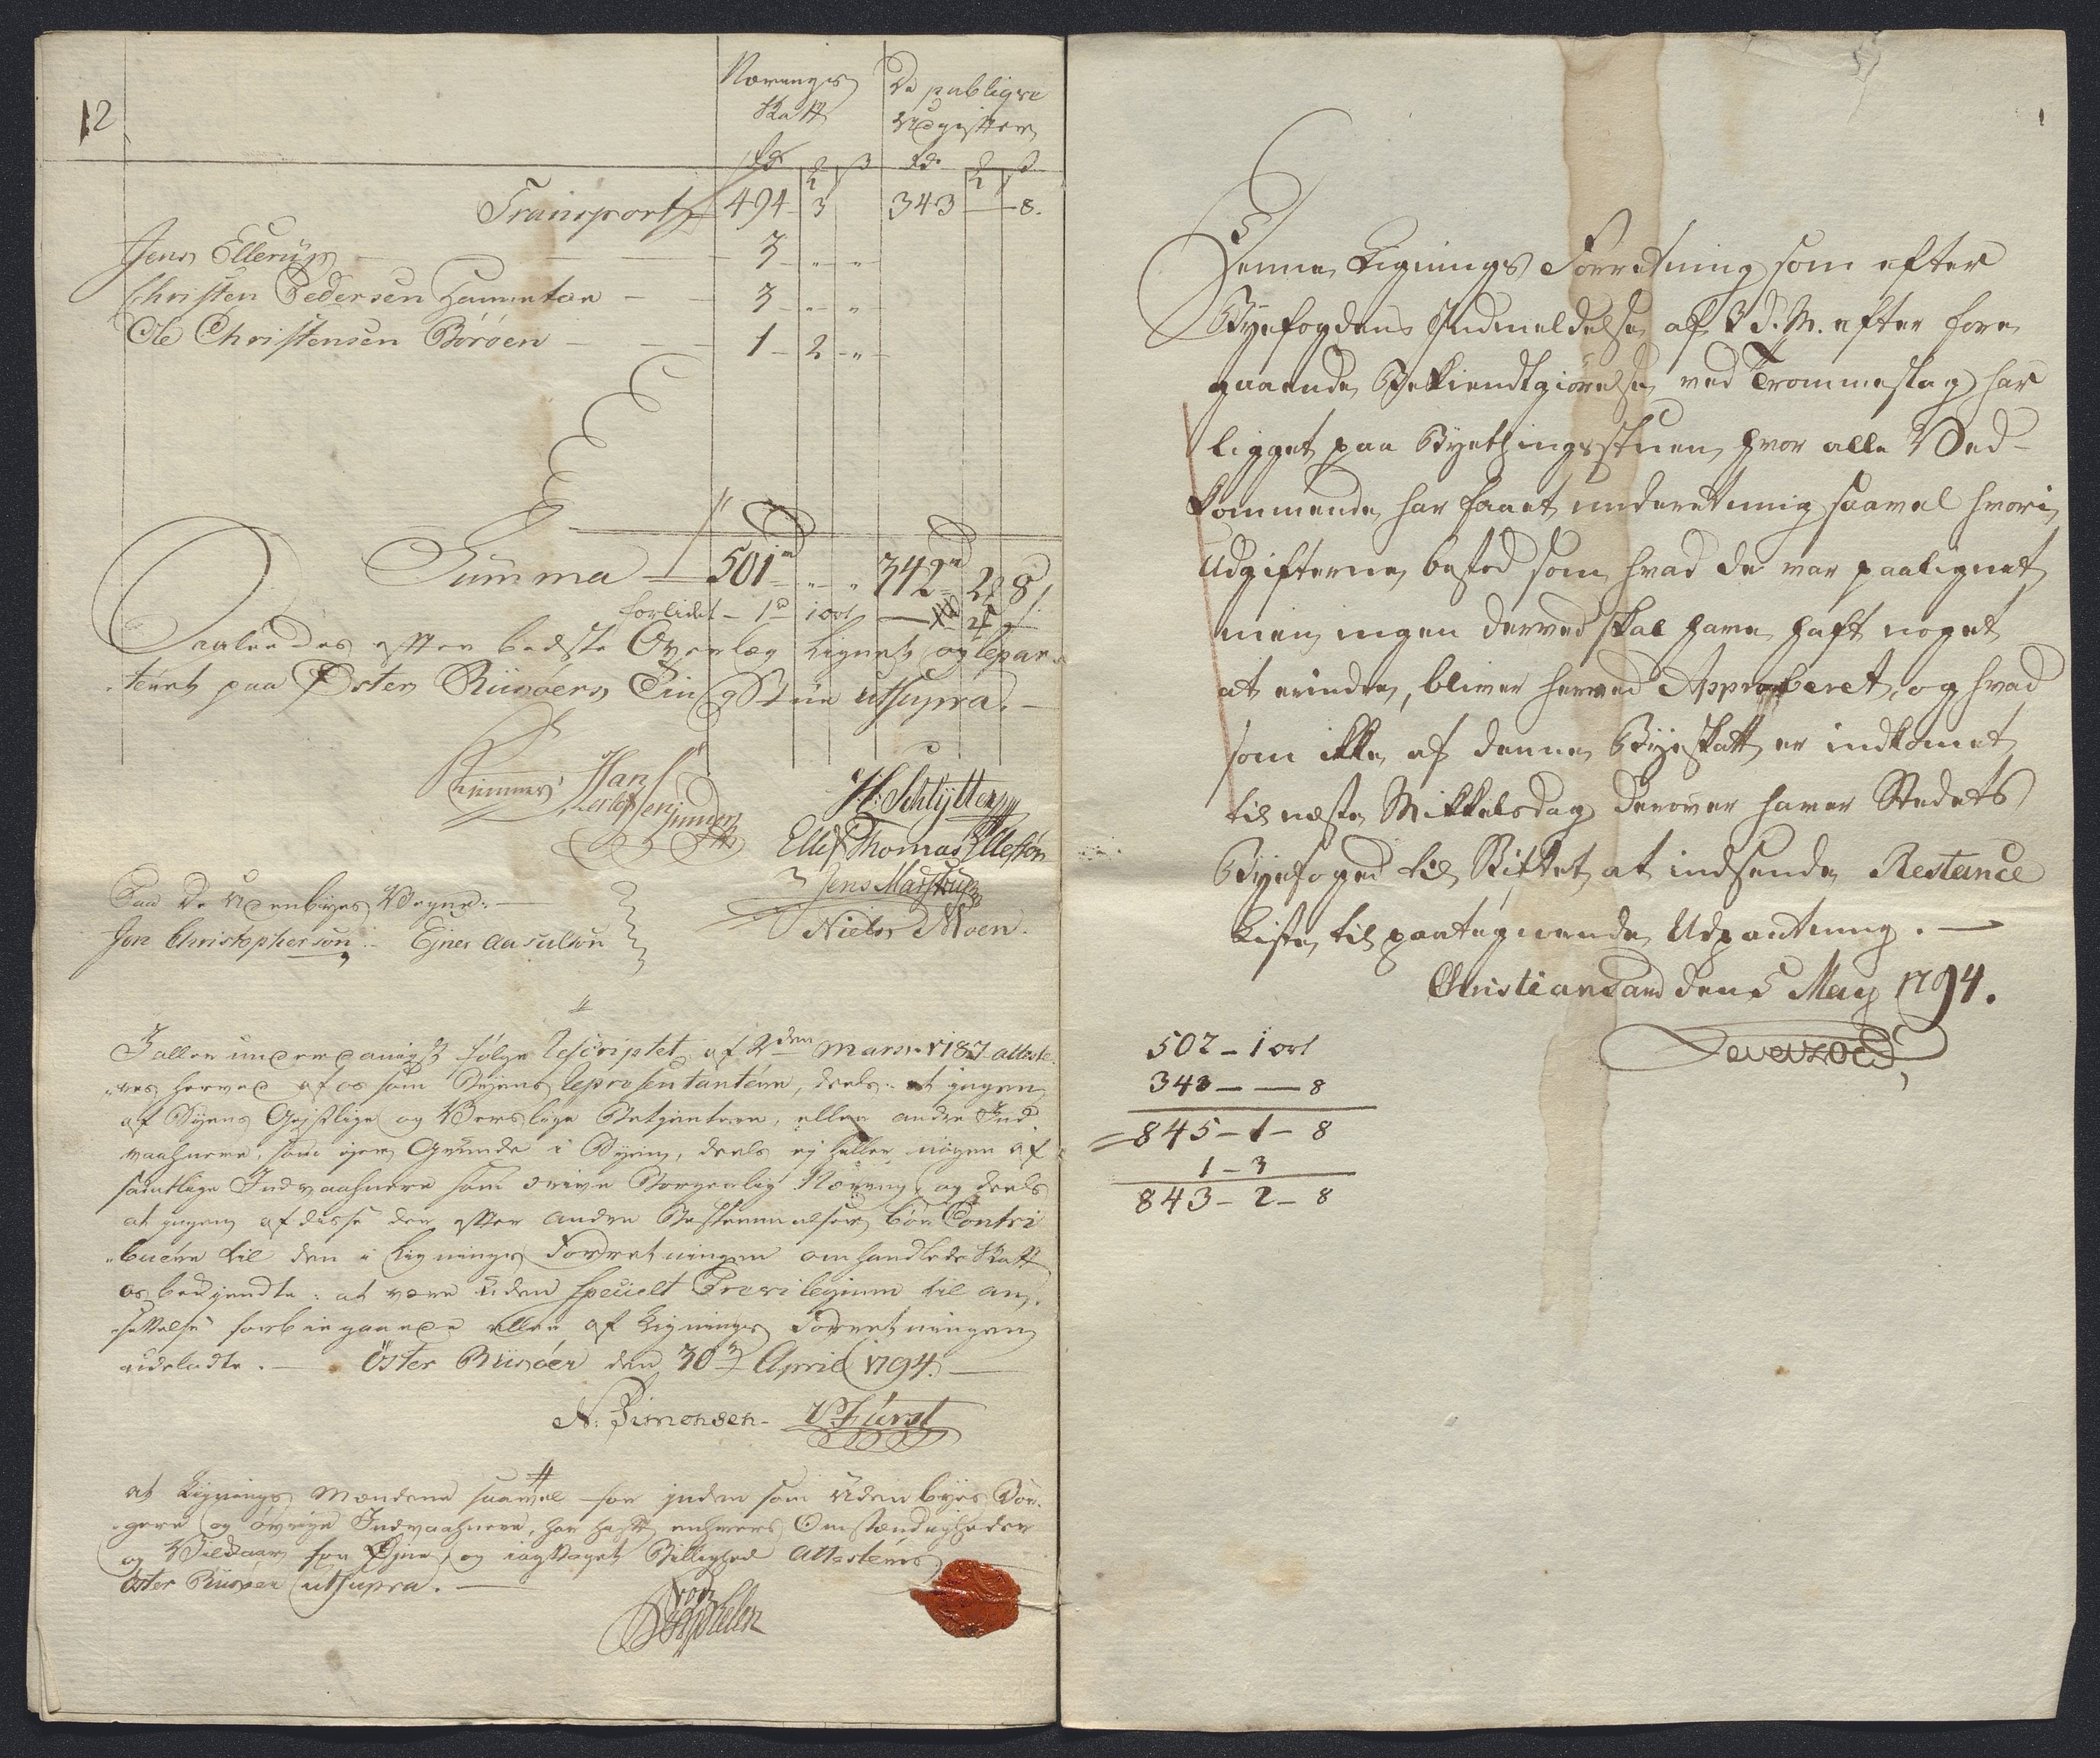 12
Nærings
Skatt
De publiqve
Udgifter
rd ort ß rd ort ß
Transport 494 - 3 343 - - 8.
Jens Ellerup - 3 - " - "
Christen Pedersen - 3 - " - "
Ole Christensen Böröen - 1 - 2 - "
Summa - 501 - " - " 342 - 2 8
forlidet - 1 1 ort
Saaledes efter bedste Overlæg Lignet og repar-
teret paa Öster Riisöers Ting Stue utsupra. -
Hans
H: Schlÿtter
Ellef Thomas Ellefsön
Jens Marstrup
Niels Moen.
Paa de Udenbyes Vegne. -
Jon Christopherson. Ejner Aasulson
I aller underdanigst fölge Rescriptet af 2den Martii atteste-
res herved af os som Byens Repræsentantere, deels at ingen
af Byens Gejstlige og Verslige Betjentere, eller andre Ind-
vaahnere, som ejer Grunde i Byen, deels ej heller nogen af
samtlige Indvaahnere som drive Borgerlig Næring, og deels
at ingen af disse der efter andre Bestemmelser bör Contri-
buere til den i Lignings Forretningen omhandlede Skatt
os bekjendte: at være uden specielt Previlegium til an-
settelse forbiegaaede eller af Lignings Forretningen
udeladte. - Öster Riisöer den 30 April 1794. -
N. Simonsen - Fürst
at Lignings Mændene saavel for inden som uden byes Bor-
gere og övrige Indvaahnere, har haft enhvers Omstændigheder
og Vilkaar for Öjne, og iagttaget Billighed Attesteres
Öster Riisöer utsupra. -
Denne Lignings Forretning som efter
Byefogdens Indmeldelse af 1 d. M. efter fore-
gaaende Bekiendtgiörelse ved Trommeslag har
ligget paa Byethingsstuen, hvor alle Ved-
kommende har faaet underretning saavel hvori
Udgifterne bestod som hvad de var paalignet
men ingen derved skal have haft noget
at erindre, bliver herved Approberet, og hvad
som ikke af denne Byeskatt er indkomet
til næste Mikkelsdag derover haver Stedets
Byefoged til Stiftet at indsende Restance
Liste til paategnende Udpantning. -
Christiansand den 5 May 1794.
Levetzow
502 - 1 ort
343 - - 8
845 - 1 - 8
1 - 3
843 - 2 - 8